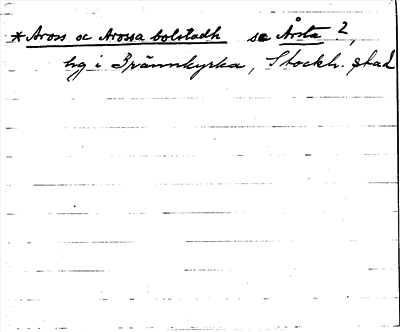 *Aross oc Arossa bolstadh se Årsta 2,
hg i Brännkyrka, Stockh. stad